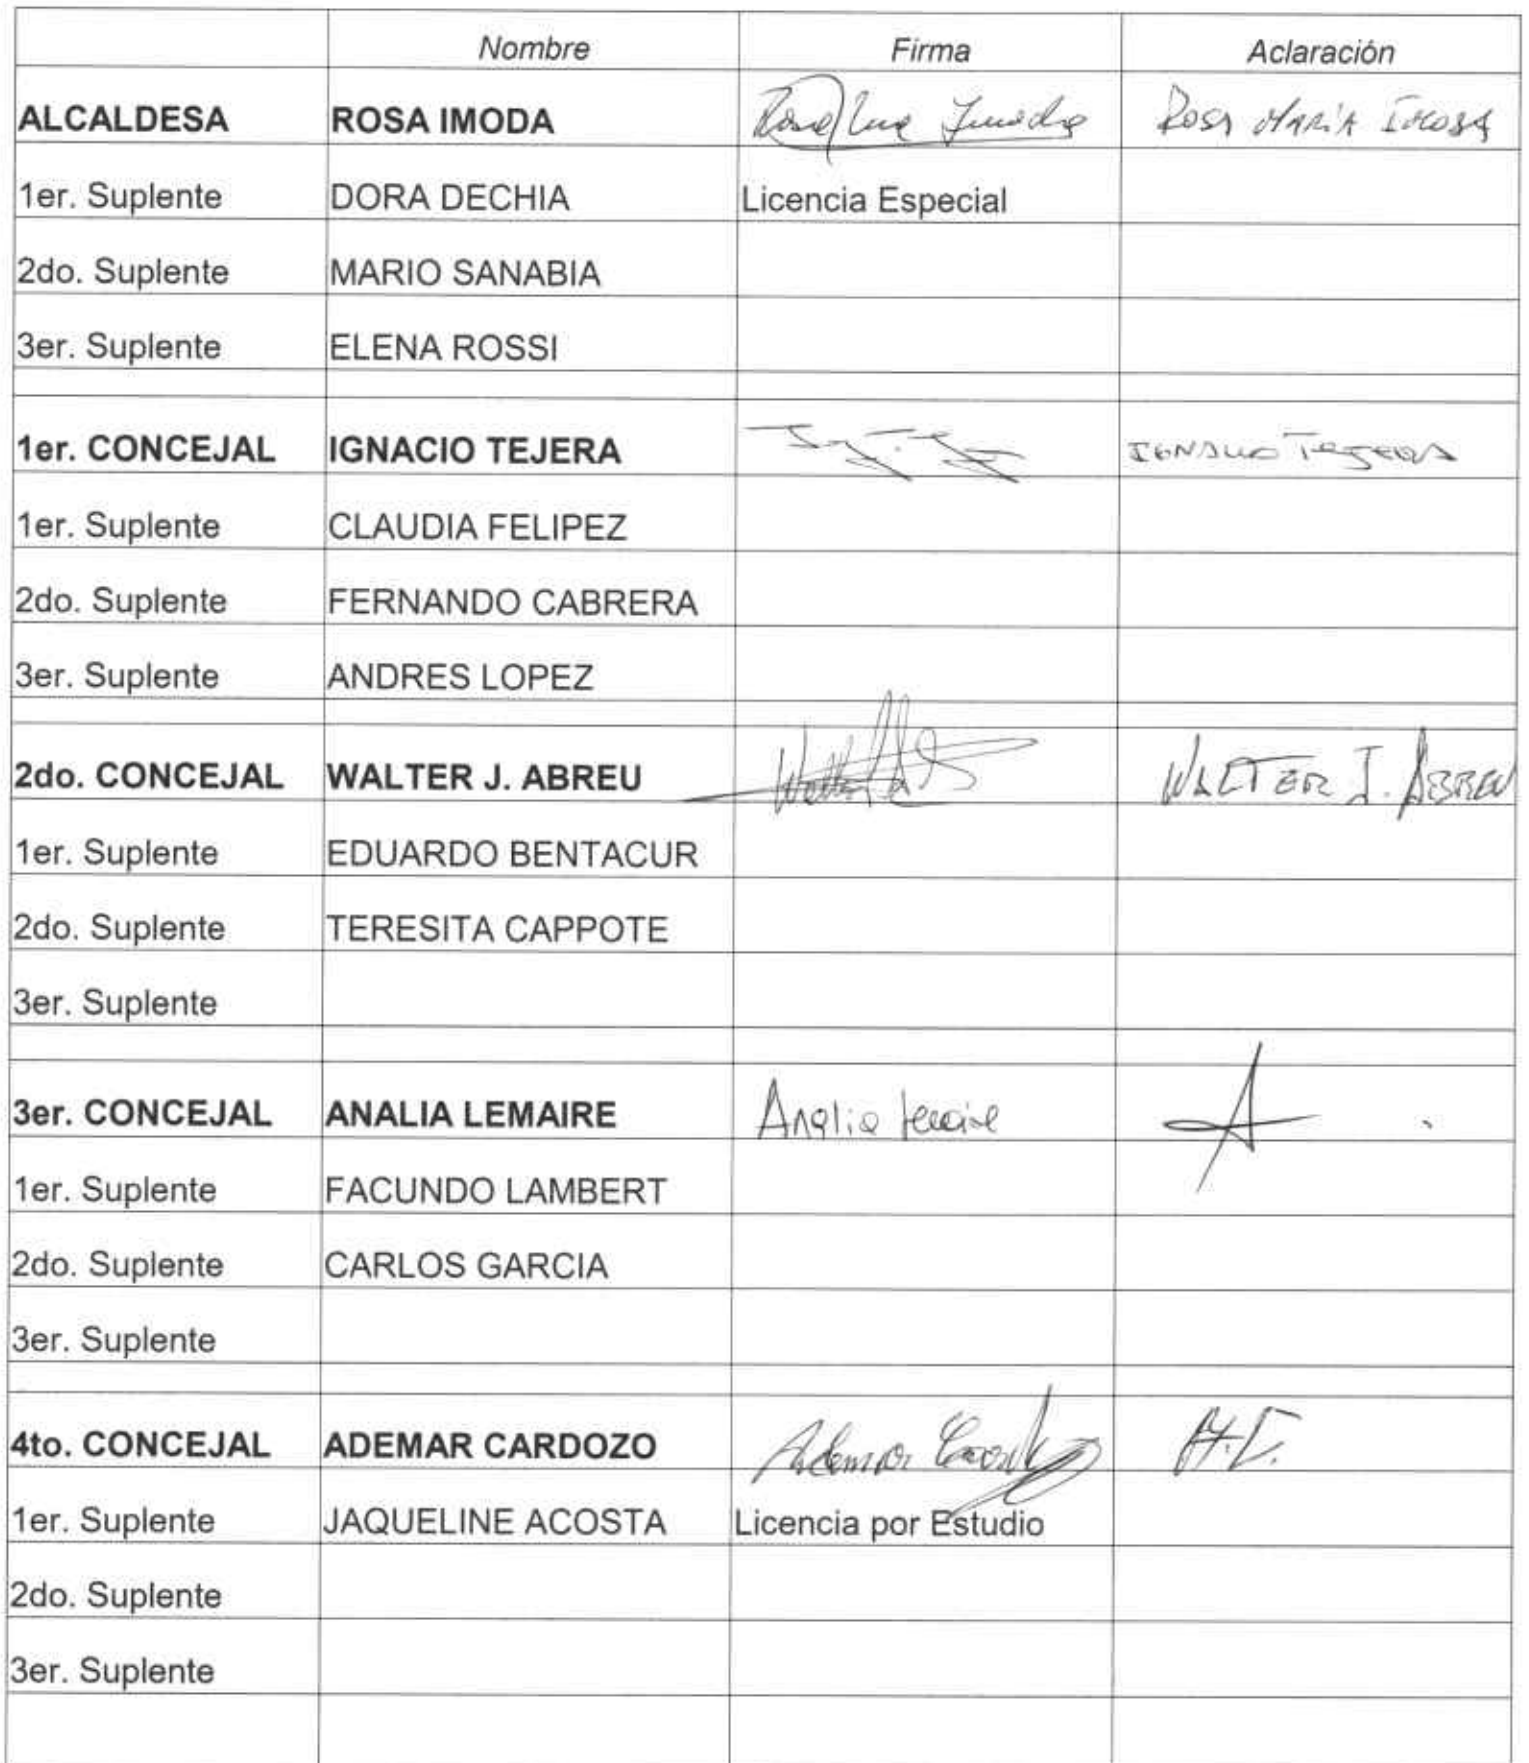 Nombre Firma Aclaración
ALCALDESA ROSA IMODA Rosa Imoda Rosa MARÍA IMODA
1er. Suplente DORA DECHIA Licencia Especial
2do. Suplente MARIO SANABIA
3er. Suplente ELENA ROSSI
1er. CONCEJAL IGNACIO TEJERA IGNACIO TEJERA
1er. Suplente CLAUDIA FELIPEZ
2do. Suplente FERNANDO CABRERA
3er. Suplente ANDRES LOPEZ
2do. CONCEJAL WALTER J. ABREU WALTER J. ABREU
1er. Suplente EDUARDO BENTACUR
2do. Suplente TERESITA CAPPOTE
3er. Suplente
3er. CONCEJAL ANALIA LEMAIRE Analia Lemaire A
1er. Suplente FACUNDO LAMBERT
2do. Suplente CARLOS GARCIA
3er. Suplente
4to. CONCEJAL ADEMAR CARDOZO Ademar Cardozo A.C.
1er. Suplente JAQUELINE ACOSTA Licencia por Estudio
2do. Suplente
3er. Suplente